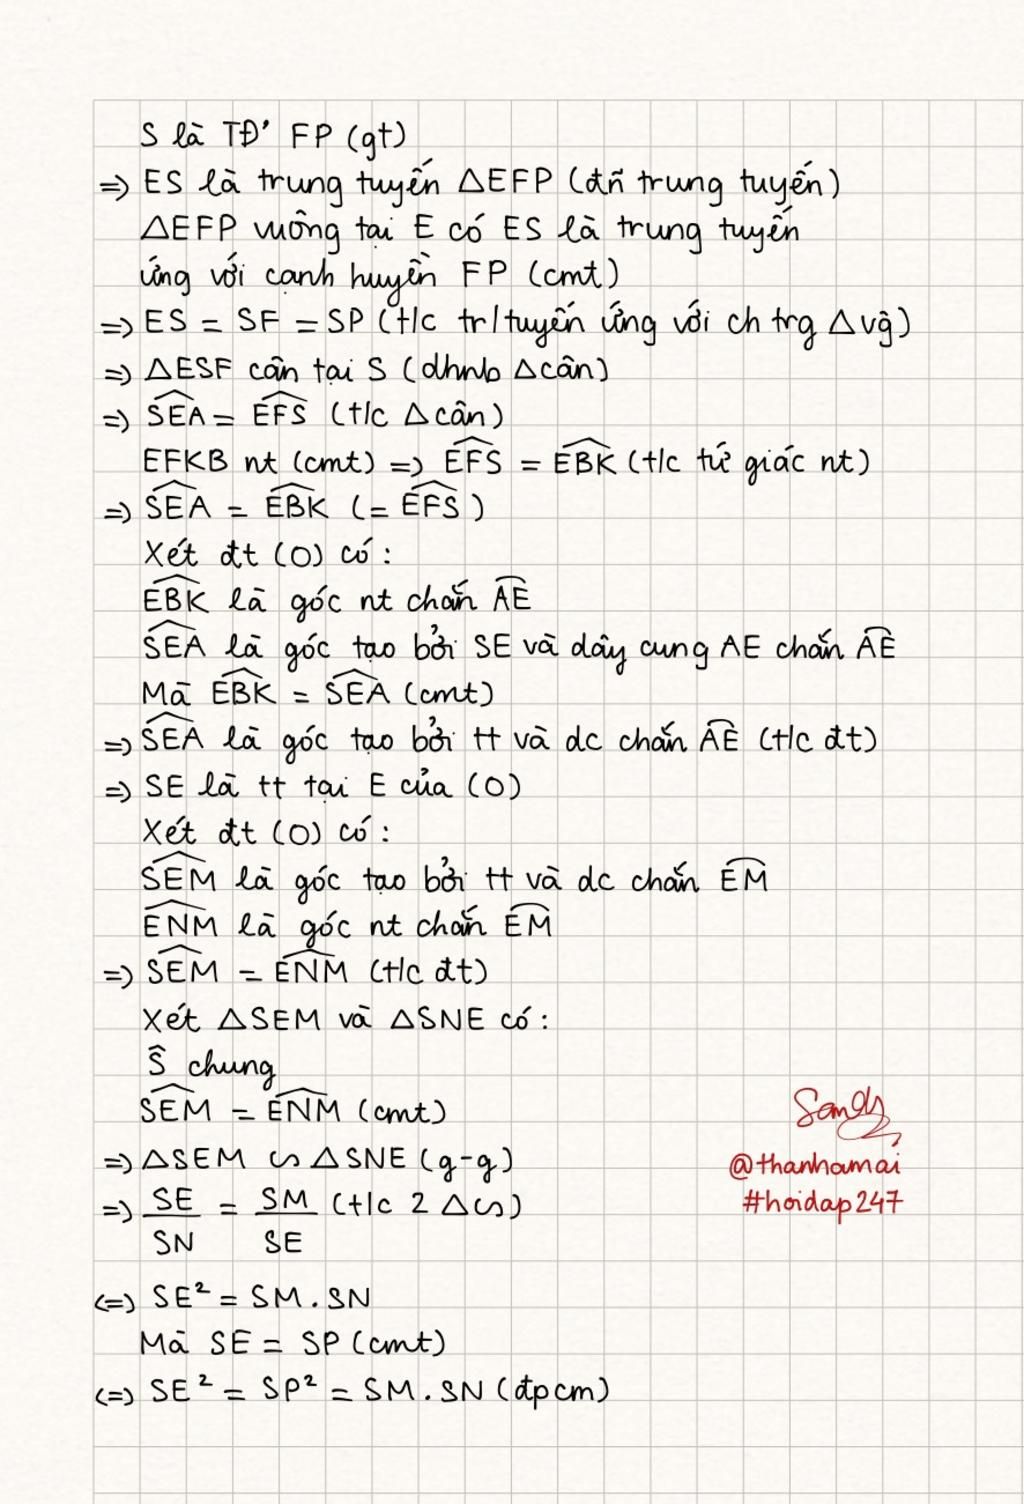 S là TĐ' FP (gt)
=> ES là trung tuyến △EFP (đn̄ trung tuyến)
△EFP vuông tại E có ES là trung tuyến
ứng với cạnh huyền FP (cmt)
=> ES = SF = SP (t/c tr/tuyến ứng với ch trg △vg̃)
=> △ESF cân tại S (dhnb △cân)
=> SEA = EFS (t/c △cân)
EFKB nt (cmt) => EFS = EBK (t/c tứ giác nt)
=> SEA = EBK (= EFS)
Xét đt (O) có:
EBK là góc nt chắn AE
SEA là góc tạo bởi SE và dây cung AE chắn AE
Mà EBK = SEA (cmt)
=> SEA là góc tạo bởi tt và dc chắn AE (t/c đt)
=> SE là tt tại E của (O)
Xét đt (O) có:
SEM là góc tạo bởi tt và dc chắn EM
ENM là góc nt chắn EM
=> SEM = ENM (t/c đt)
Xét △SEM và △SNE có:
Ŝ chung
SEM = ENM (cmt)
Sandy
=> △SEM ∽ △SNE (g-g)
@thanhamai
=> SE/SN = SM/SE (t/c 2 △∽)
#hoidap247
<=> SE² = SM.SN
Mà SE = SP (cmt)
<=> SE² = SP² = SM.SN (đpcm)